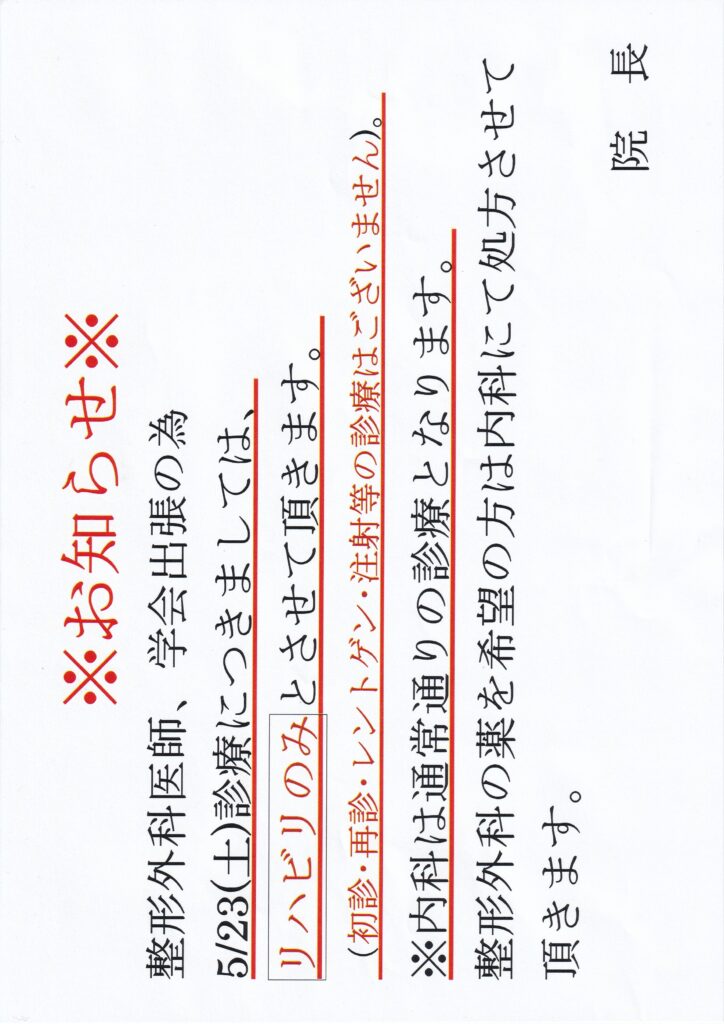 ※お知らせ※
整形外科医師、学会出張の為
5/23(土)診療につきましては、
リハビリのみとさせて頂きます。
(初診・再診・レントゲン・注射等の診療はございません)。
※内科は通常通りの診療となります。
整形外科の薬を希望の方は内科にて処方させて
頂きます。
院 長